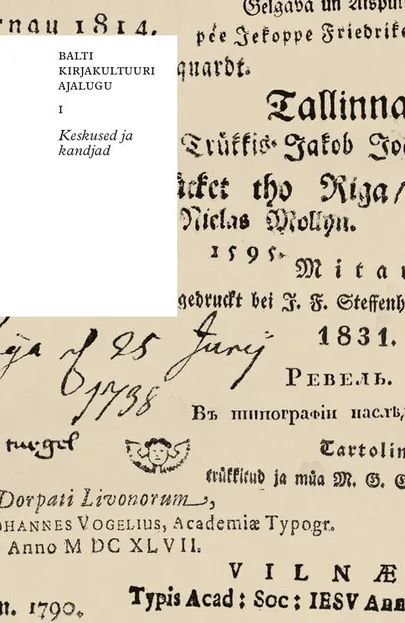 Gelgava un Aispu
rnau 1814.
pée Jekoppe Friedrik
quardt.
BALTI
KIRJAKULTUURI
AJALUGU
I
Keskused ja
kandjad
Tallinna
Trükkis Jakob Jo
ücket tho Riga/
Niclas Mollyn.
1595.
Mitau
gedruckt bei J. F. Steffenh
1831.
25 Junij
1738
РЕВЕЛЬ.
Въ типографіи наслѣ
turgel
Tartolin
trükkitud ja müa M. G. G
Dorpati Livonorum,
OHANNES VOGELIUS, Academiæ Typogr.
Anno M DC XLVII.
VILNÆ
Typis Acad: Soc: IESV Ann
n. 1790.